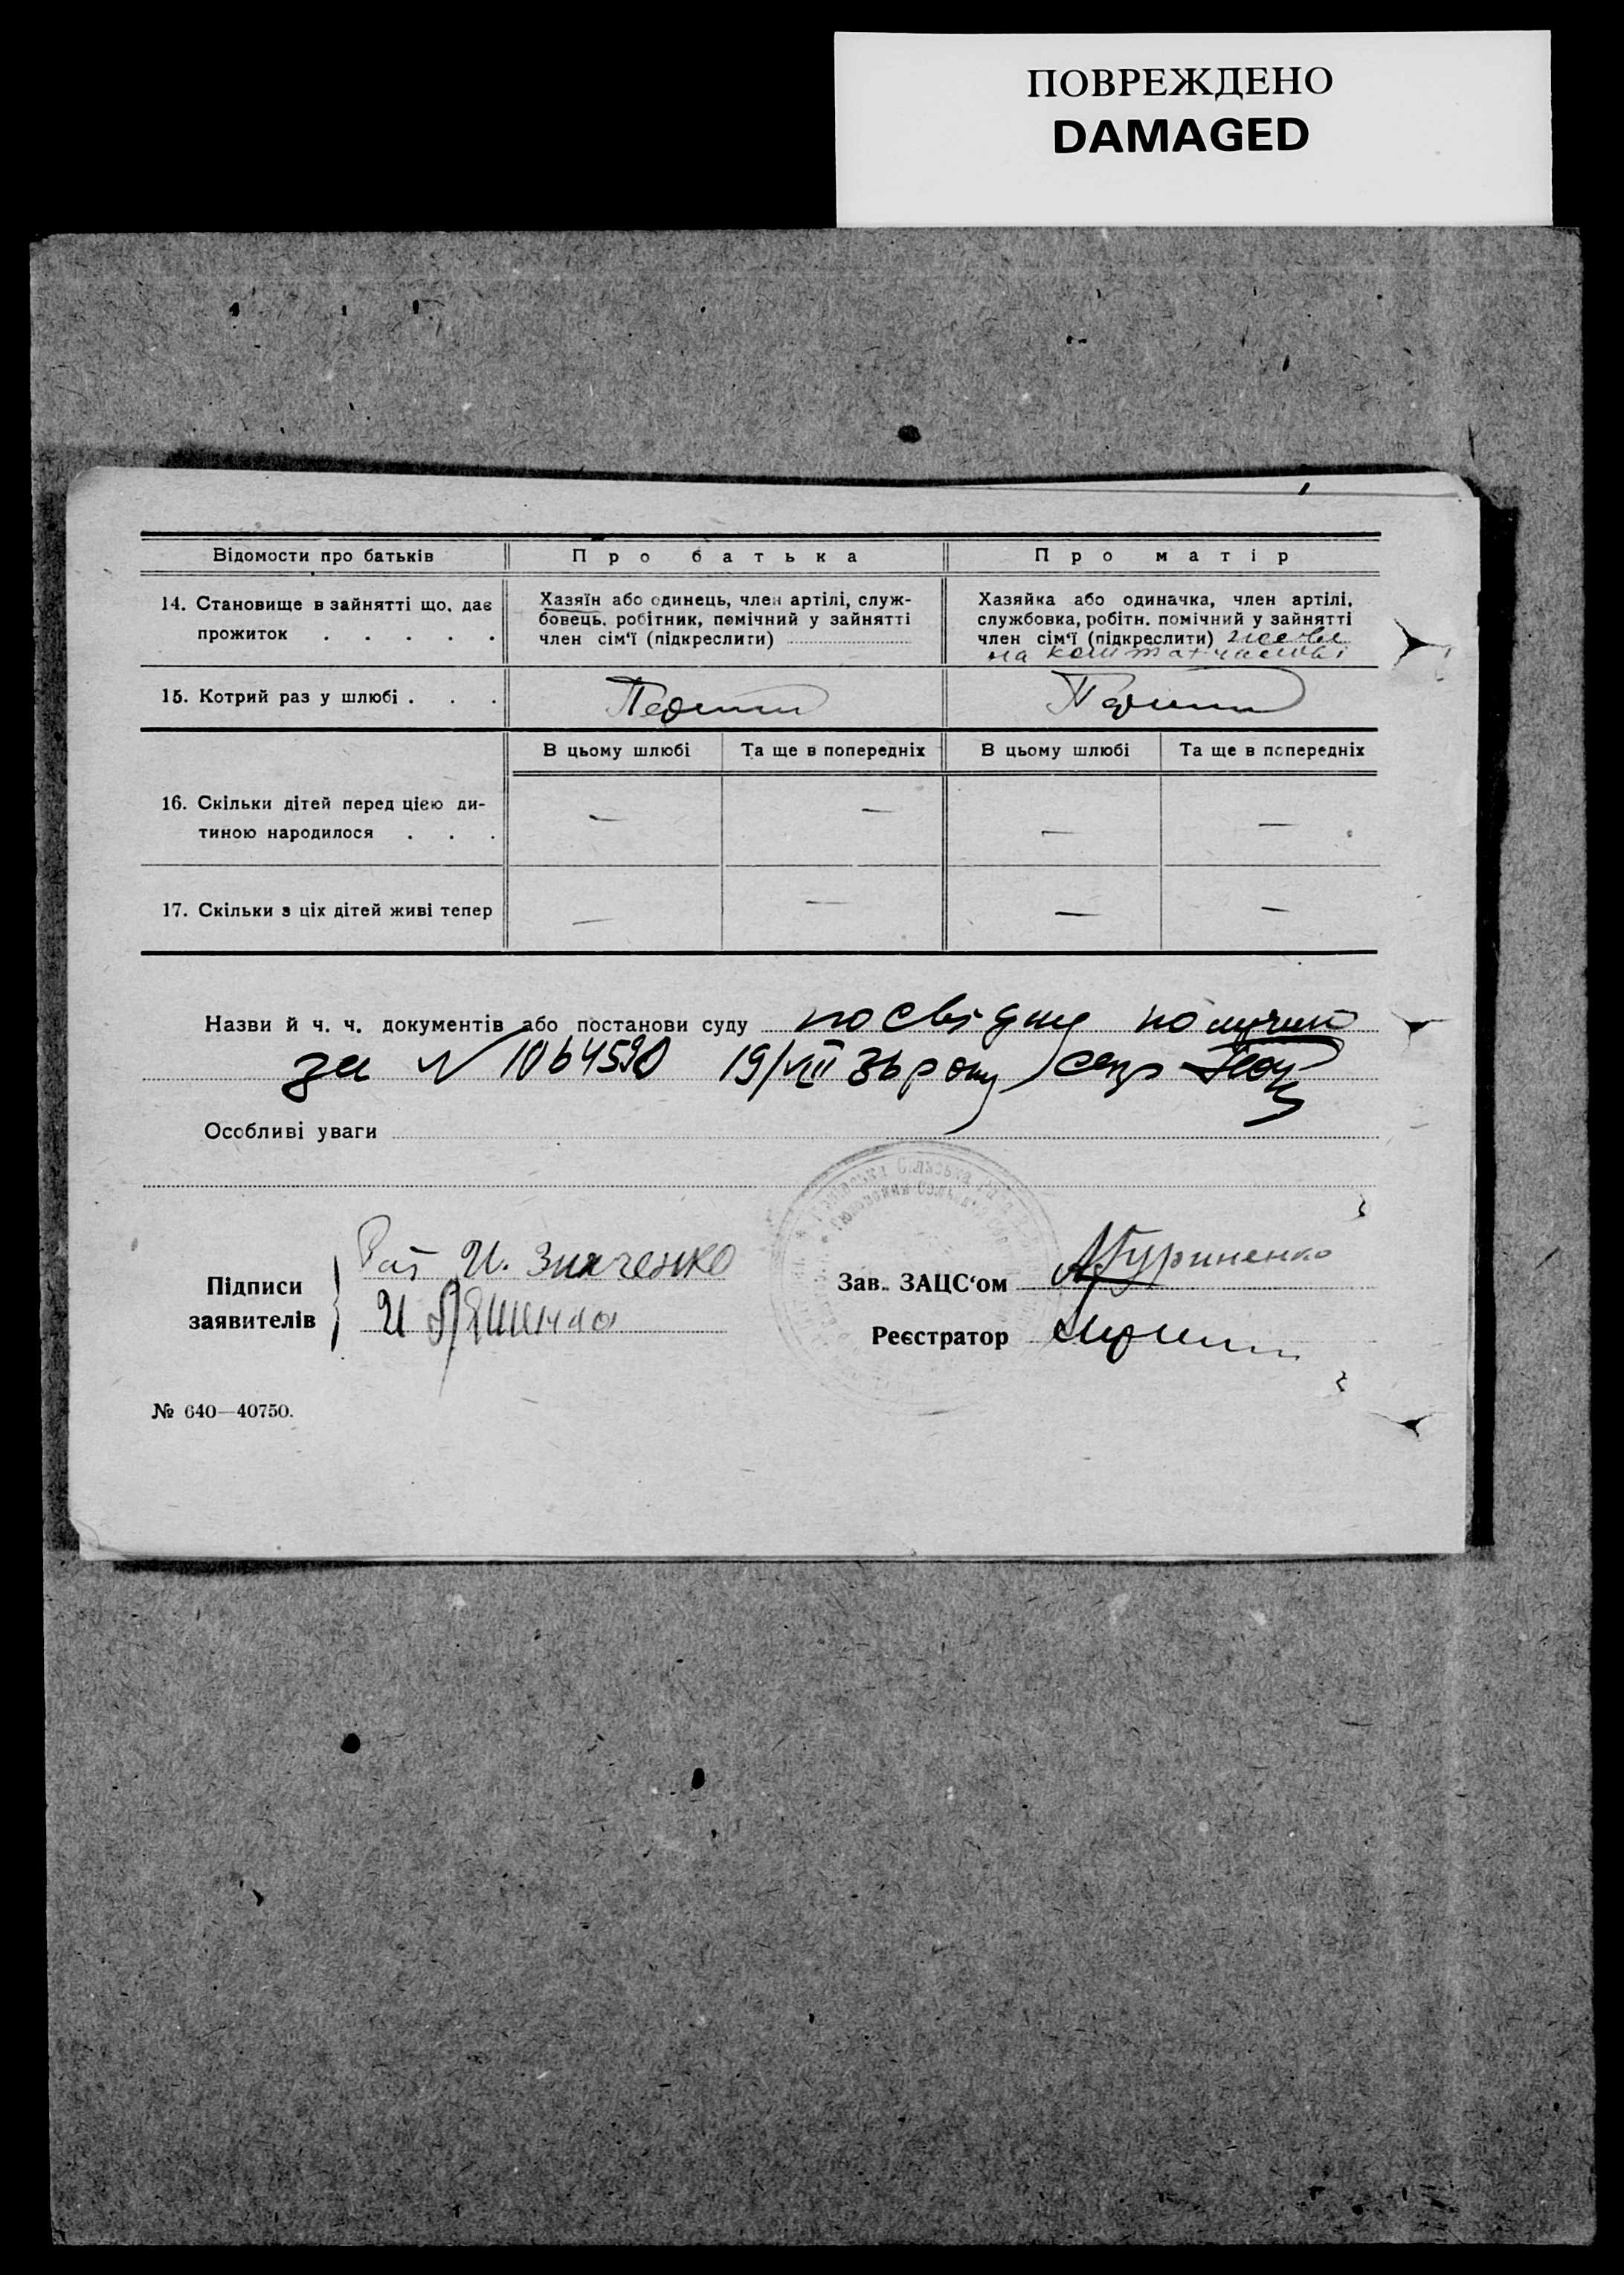 ПОВРЕЖДЕНО
DAMAGED
Відомости про батьків
Про батька
Про матір
14. Становище в зайнятті що, дає
прожиток . . . . .
Хазяїн або одинець, член артілі, служ-
бовець, робітник, помічний у зайнятті
член сім'ї (підкреслити)
Хазяйка або одиначка, член артілі,
службовка, робітн. помічний у зайнятті
член сім'ї (підкреслити)
на
15. Котрий раз у шлюбі . . .
Перший
Перший
В цьому шлюбі
Та ще в попередніх
В цьому шлюбі
Та ще в попередніх
16. Скільки дітей перед цією ди-
тиною народилося . . .
— — — —
17. Скільки з ціх дітей живі тепер
— — — —
Назви й ч. ч. документів або постанови суду посвідку получив
за N 1064590 19/VIII 36 року секр
Особливі уваги
Підписи
заявителів
И.
И
Зав. ЗАЦС'ом А Гуриненко
Реєстратор
№ 640—40750.